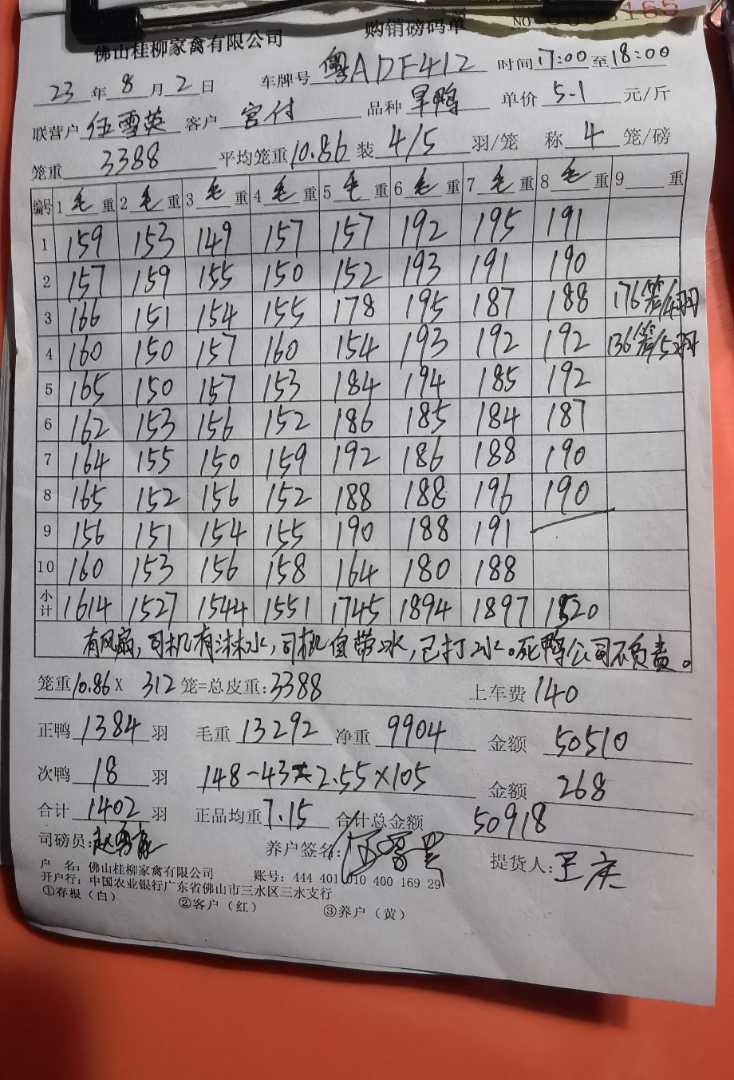 佛山桂柳家禽有限公司 购销磅码单 NO
23 年 8 月 2 日 车牌号 粤ADF412 时间 17:00 至 18:00
联营户 伍雪英 客户 宫付 品种 旱鸭 单价 5.1 元/斤
笼重 3388 平均笼重 10.86 装 4/5 羽/笼 称 4 笼/磅
编号 1 毛 重 2 毛 重 3 毛 重 4 毛 重 5 毛 重 6 毛 重 7 毛 重 8 毛 重 9 重
1 159 153 149 157 157 192 195 191
2 157 159 155 150 152 193 191 190
3 166 151 154 155 178 195 187 188 176笼/4羽
4 160 150 157 160 154 193 192 192 136笼/5羽
5 165 150 157 153 184 194 185 192
6 162 153 156 152 186 185 184 187
7 164 155 150 159 192 186 188 190
8 165 152 156 152 188 188 196 190
9 156 151 154 155 190 188 191
10 160 153 156 158 164 180 188
小计 1614 1527 1544 1551 1745 1894 1897 1520
有风扇,司机有淋水,司机自带冰,已打冰。死鸭公司不负责。
笼重 10.86 X 312 笼=总皮重: 3388 上车费 140
正鸭 1384 羽 毛重 13292 净重 9904 金额 50510
次鸭 18 羽 148-43=2.55×105 金额 268
合计 1402 羽 正品均重 7.15 合计总金额 50918
司磅员: 养户签名: 提货人:
户 名: 佛山桂柳家禽有限公司 账号: 444 401 010 400 169 29
开户行: 中国农业银行广东省佛山市三水区三水支行
①存根(白) ②客户(红) ③养户(黄)